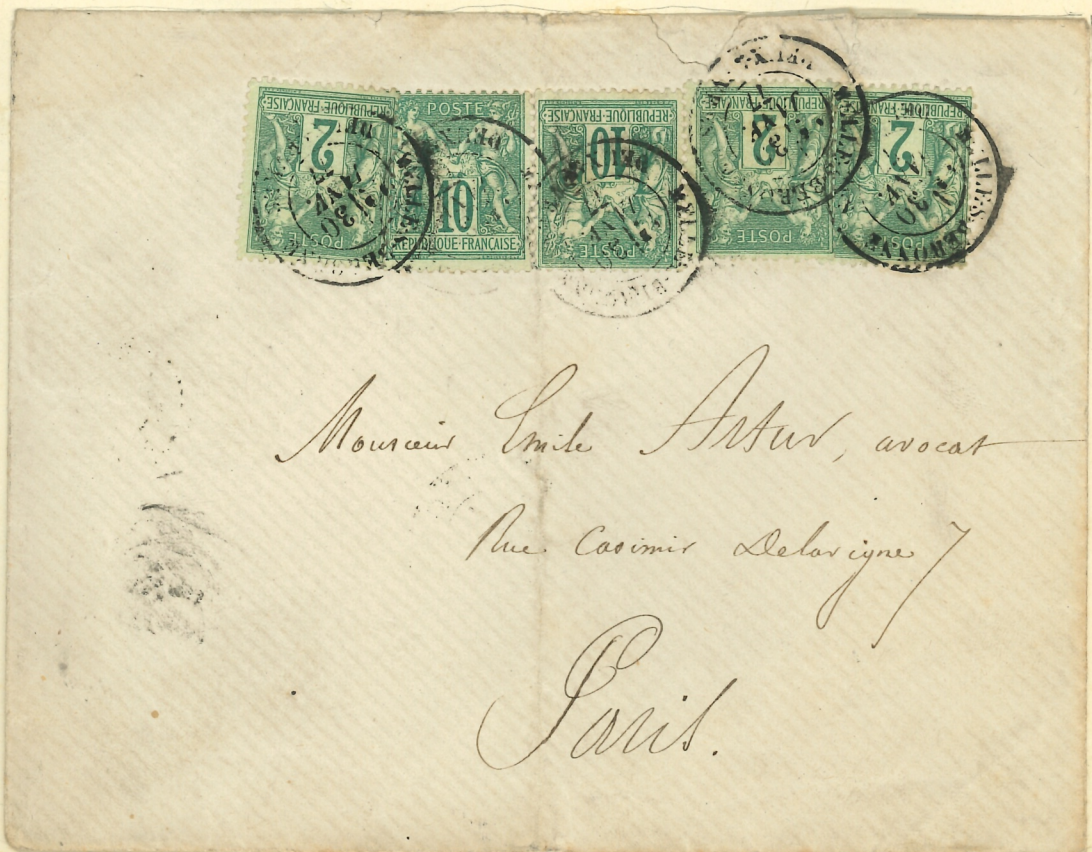 2
REPUBLIQUE·FRANÇAISE
POSTE
POSTE
10
REPUBLIQUE·FRANÇAISE
10
REPUBLIQUE·FRANÇAISE
POSTE
2
REPUBLIQUE·FRANÇAISE
POSTE
2
REPUBLIQUE·FRANÇAISE
30
JANV
Monsieur Emile Artur, avocat
Rue Casimir Delavigne 7
Paris.